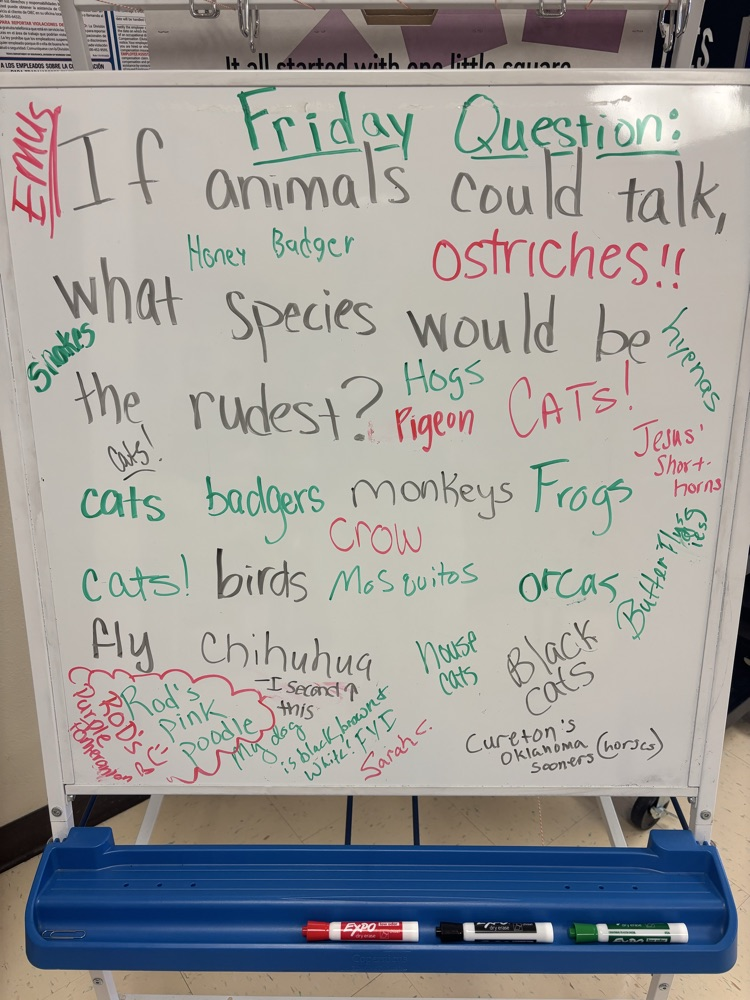 It all started with one little square
PARA REPORTAR VIOLACIONES DE
A LOS EMPLEADOS SOBRE LA
EMUS
Friday Question:
If animals could talk,
Honey Badger
Ostriches!!
what species would be
Snakes
hyenas
the rudest?
Hogs
Pigeon
CATS!
Cats!
Jesus'
Short-
horns
cats badgers monkeys Frogs
Crow
cats! birds Mosquitos orcas
Butterfly's
ies
fly Chihuhua
house
cats
Black
cats
- I second ↑
this
Rod's
pink
poodle
ROD'S
Purple
Pomeranian
My dog
is black, brown +
white! FYI
Sarah C.
Cureton's
Oklahoma
Sooners (horses)
EXPO
dry erase
EXPO
dry erase
EXPO